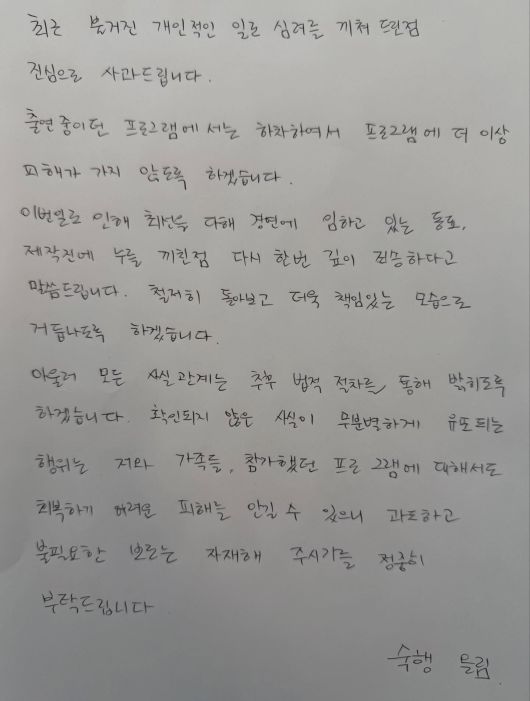 최근 불거진 개인적인 일로 심려를 끼쳐 드린점
진심으로 사과드립니다.
출연 중이던 프로그램에서는 하차하여서 프로그램에 더 이상
피해가 가지 않도록 하겠습니다.
이번일로 인해 최선을 다해 경연에 임하고 있는 동료,
제작진에 누를 끼친점 다시 한번 깊이 죄송하다고
말씀드립니다. 철저히 돌아보고 더욱 책임있는 모습으로
거듭나도록 하겠습니다.
아울러 모든 사실 관계는 추후 법적 절차를 통해 밝히도록
하겠습니다. 확인되지 않은 사실이 무분별하게 유포되는
행위는 저와 가족들, 참가했던 프로그램에 대해서도
회복하기 어려운 피해를 안길 수 있으니 과도하고
불필요한 보도는 자재해 주시기를 정중히
부탁드립니다
숙행 올림